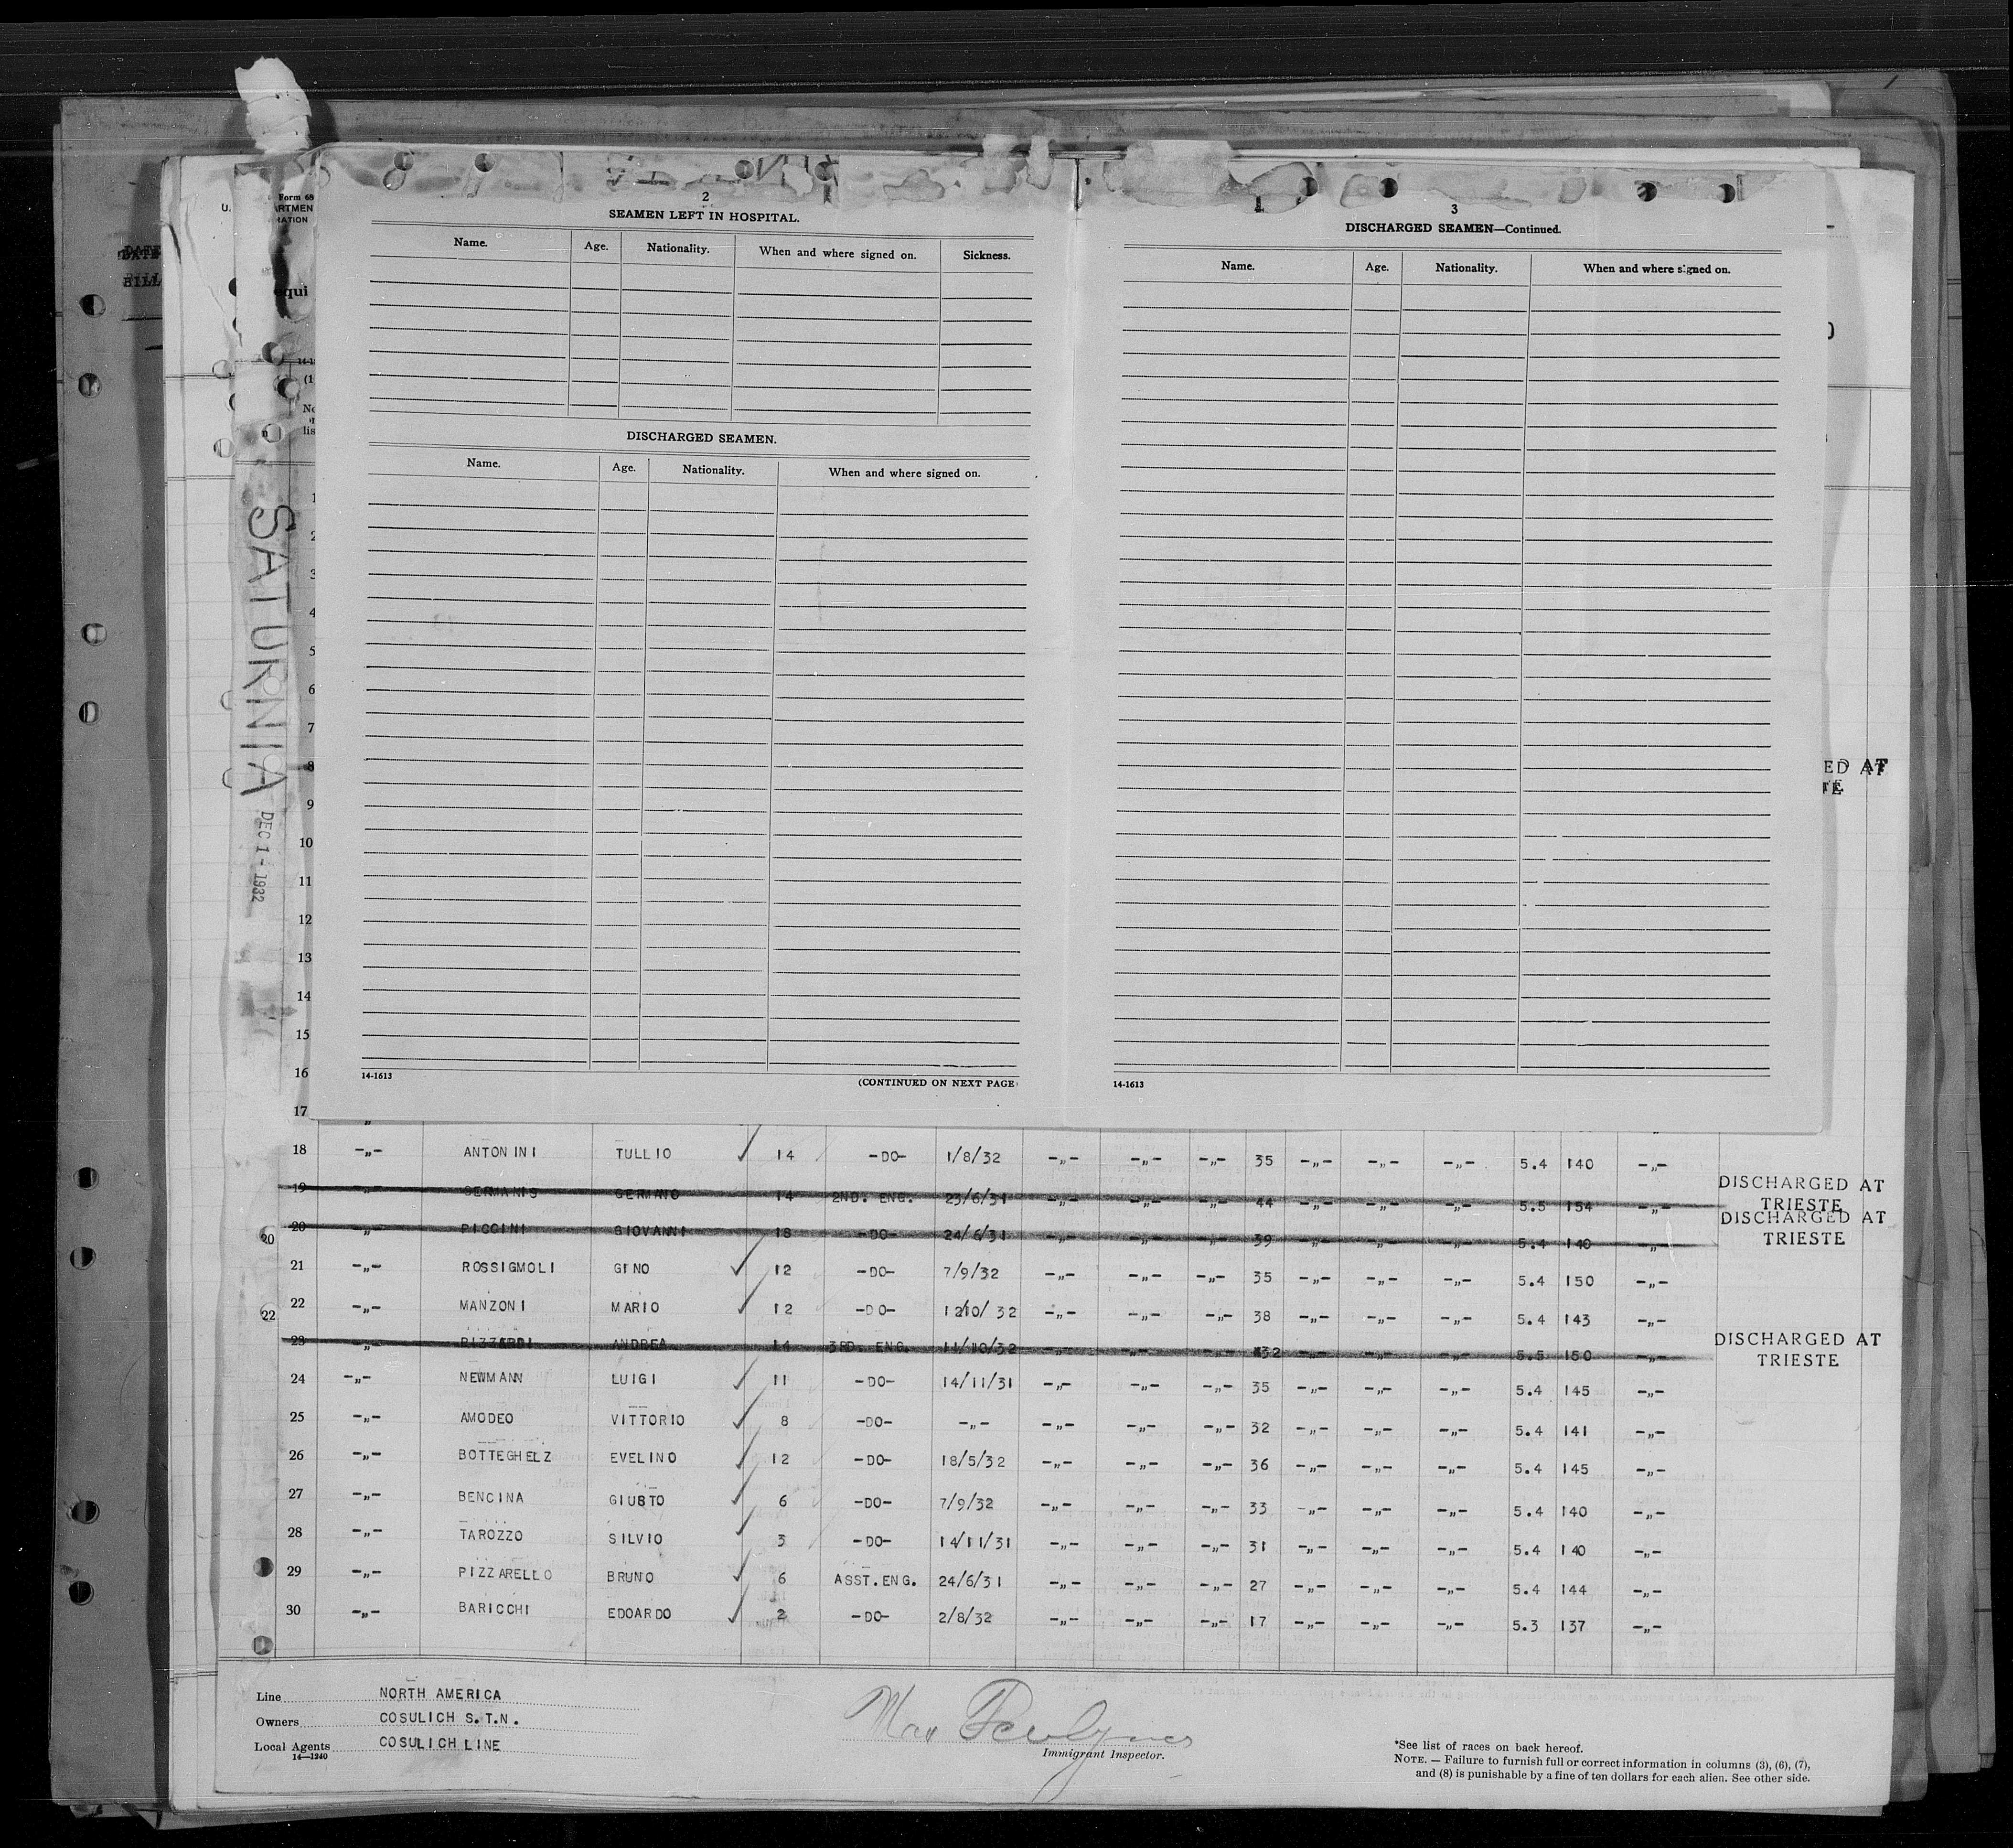 SATURNIA
DEC 1 - 1932
2
SEAMEN LEFT IN HOSPITAL.
Name. Age. Nationality. When and where signed on. Sickness.
DISCHARGED SEAMEN.
Name. Age. Nationality. When and where signed on.
14-1613 (CONTINUED ON NEXT PAGE
3
DISCHARGED SEAMEN—Continued.
Name. Age. Nationality. When and where signed on.
14-1613
ED AT
TE
1
2
3
4
5
6
7
8
9
10
11
12
13
14
15
16
17
18 -„- ANTONINI TULLIO ✓ 14 -DO- 1/8/32 -„- -„- -„- 35 -„- -„- -„- 5.4 140 -„-
19 -„- GERMANIS GERMANO 14 2ND. ENG. 23/6/31 -„- -„- -„- 44 -„- -„- -„- 5.5 154 -„- DISCHARGED AT TRIESTE
20 20 -„- PICCINI GIOVANNI 18 -DO- 24/6/31 -„- -„- -„- 39 -„- -„- -„- 5.4 140 -„- DISCHARGED AT TRIESTE
21 -„- ROSSIGMOLI GINO ✓ 12 -DO- 7/9/32 -„- -„- -„- 35 -„- -„- -„- 5.4 150 -„-
22 22 -„- MANZONI MARIO ✓ 12 -DO- 1210/ 32 -„- -„- -„- 38 -„- -„- -„- 5.4 143 -„-
23 -„- ANDREA 14 3RD. ENG. 11/10/32 -„- -„- -„- 32 -„- -„- -„- 5.5 150 -„- DISCHARGED AT TRIESTE
24 -„- NEWMANN LUIGI ✓ 11 -DO- 14/11/31 -„- -„- -„- 35 -„- -„- -„- 5.4 145 -„-
25 -„- AMODEO VITTORIO ✓ 8 -DO- -„- -„- -„- -„- 32 -„- -„- -„- 5.4 141 -„-
26 -„- BOTTEGHELZ EVELINO ✓ 12 -DO- 18/5/32 -„- -„- -„- 36 -„- -„- -„- 5.4 145 -„-
27 -„- BENCINA GIUSTO ✓ 6 -DO- 7/9/32 -„- -„- -„- 33 -„- -„- -„- 5.4 140 -„-
28 -„- TAROZZO SILVIO ✓ 3 -DO- 14/11/31 -„- -„- -„- 31 -„- -„- -„- 5.4 140 -„-
29 -„- PIZZARELLO BRUNO ✓ 6 ASST.ENG. 24/6/31 -„- -„- -„- 27 -„- -„- -„- 5.4 144 -„-
30 -„- BARICCHI EDOARDO ✓ 2 -DO- 2/8/32 -„- -„- -„- 17 -„- -„- -„- 5.3 137 -„-
Line NORTH AMERICA
Owners COSULICH S.T.N.
Local Agents COSULICH LINE
14—1240
Max
Immigrant Inspector.
*See list of races on back hereof.
NOTE. — Failure to furnish full or correct information in columns (3), (6), (7),
and (8) is punishable by a fine of ten dollars for each alien. See other side.